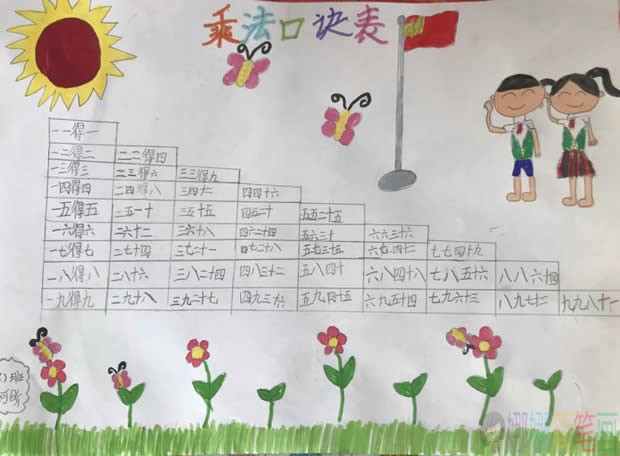 乘法口诀表
一一得一
一二得二 二二得四
一三得三 二三得六 三三得九
一四得四 二四得八 三四十二 四四十六
一五得五 二五一十 三五十五 四五二十 五五二十五
一六得六 二六十二 三六十八 四六二十四 五六三十 六六三十六
一七得七 二七十四 三七二十一 四七二十八 五七三十五 六七四十二 七七四十九
一八得八 二八十六 三八二十四 四八三十二 五八四十 六八四十八 七八五十六 八八六十四
一九得九 二九十八 三九二十七 四九三十六 五九四十五 六九五十四 七九六十三 八九七十二 九九八十一
班
娜娜 笔画